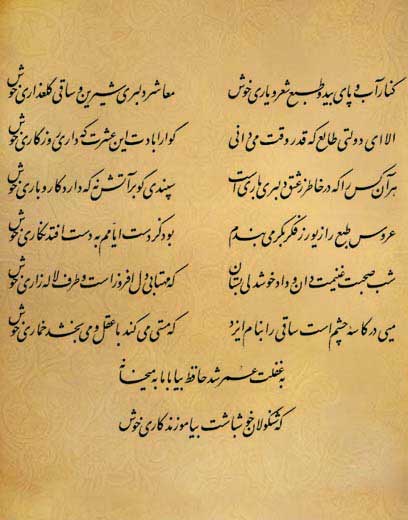 کنار آب و پای بید و طبع شعر و یاری خوش معاشر دلبری شیرین و ساقی گلعذاری خوش
الا ای دولتی طالع که قدر وقت می دانی گوارا بادت این عشرت که داری روزگاری خوش
هر آن کس را که در خاطر ز عشق دلبری باری است سپندی گو بر آتش نه که دارد کار و باری خوش
عروس طبع را زیور ز فکر بکر می بندم بود کز دست ایامم به دست افتد نگاری خوش
شب صحبت غنیمت دان و داد خوشدلی بستان که مهتابی دل افروز است و طرف لاله زاری خوش
میی در کاسه چشم است ساقی را بنام ایزد که مستی می کند با عقل و می بخشد خماری خوش
به غفلت عمر شد حافظ بیا با ما به میخانه
که شنگولان خوشباشت بیاموزند کاری خوش